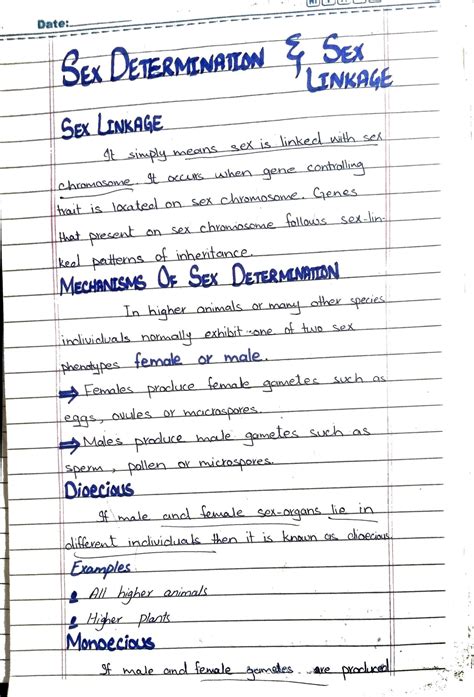 Date:
SEX DETERMINATION & SEX
LINKAGE
SEX LINKAGE
It simply means sex is linked with sex
chromosome. It occurs when gene controlling
trait is located on sex chromosome. Genes
that present on sex chromosome follows sex-lin-
ked patterns of inheritance.
MECHANISMS OF SEX DETERMINATION
In higher animals or many other species
individuals normally exhibit one of two sex
phenotypes female or male.
⇒ Females produce female gametes such as
eggs, ovules or macrospores.
⇒ Males produce male gametes such as
sperm, pollen or microspores.
Dioecious
If male and female sex-organs lie in
different individuals then it is known as dioecious.
Examples
1 All higher animals
2 Higher plants
Monoecious
If male and female gametes are produced